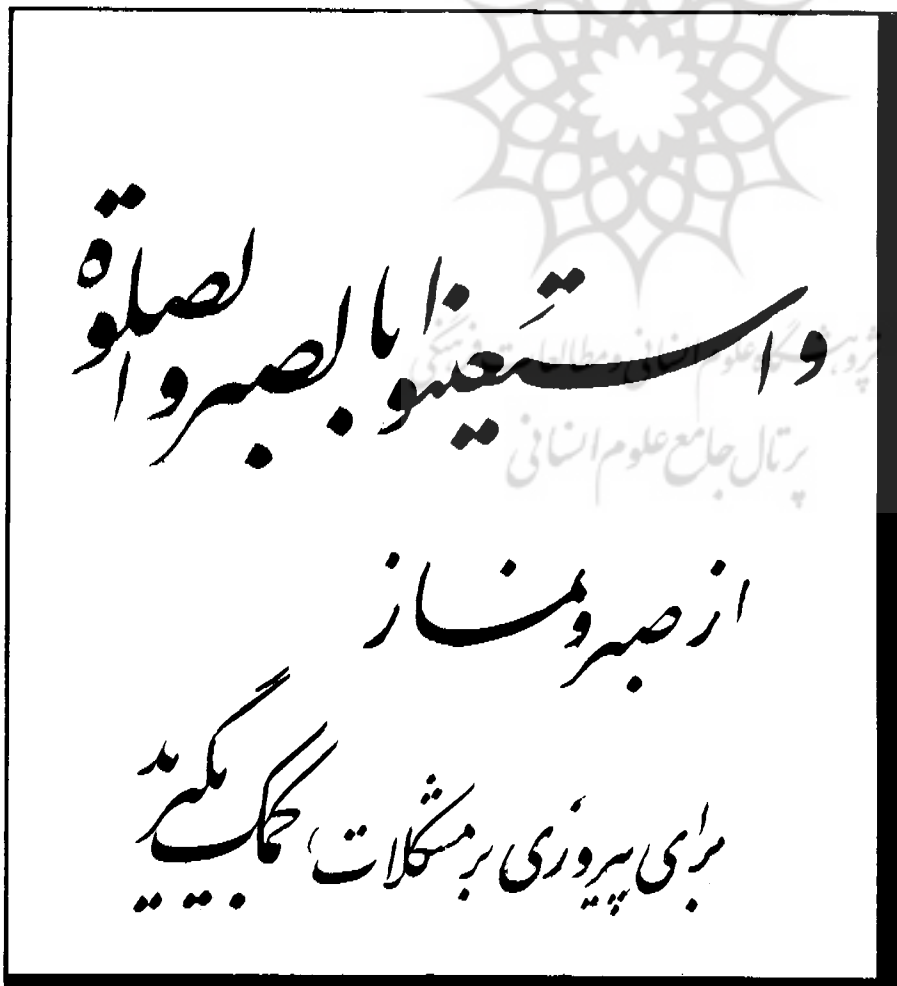 واستَعینوا بالصبر والصلوة
پژوهشگاه علوم انسانی و مطالعات فرهنگی
پرتال جامع علوم انسانی
از صبر و نماز
برای پیروزی بر مشکلات، کمک بگیرید